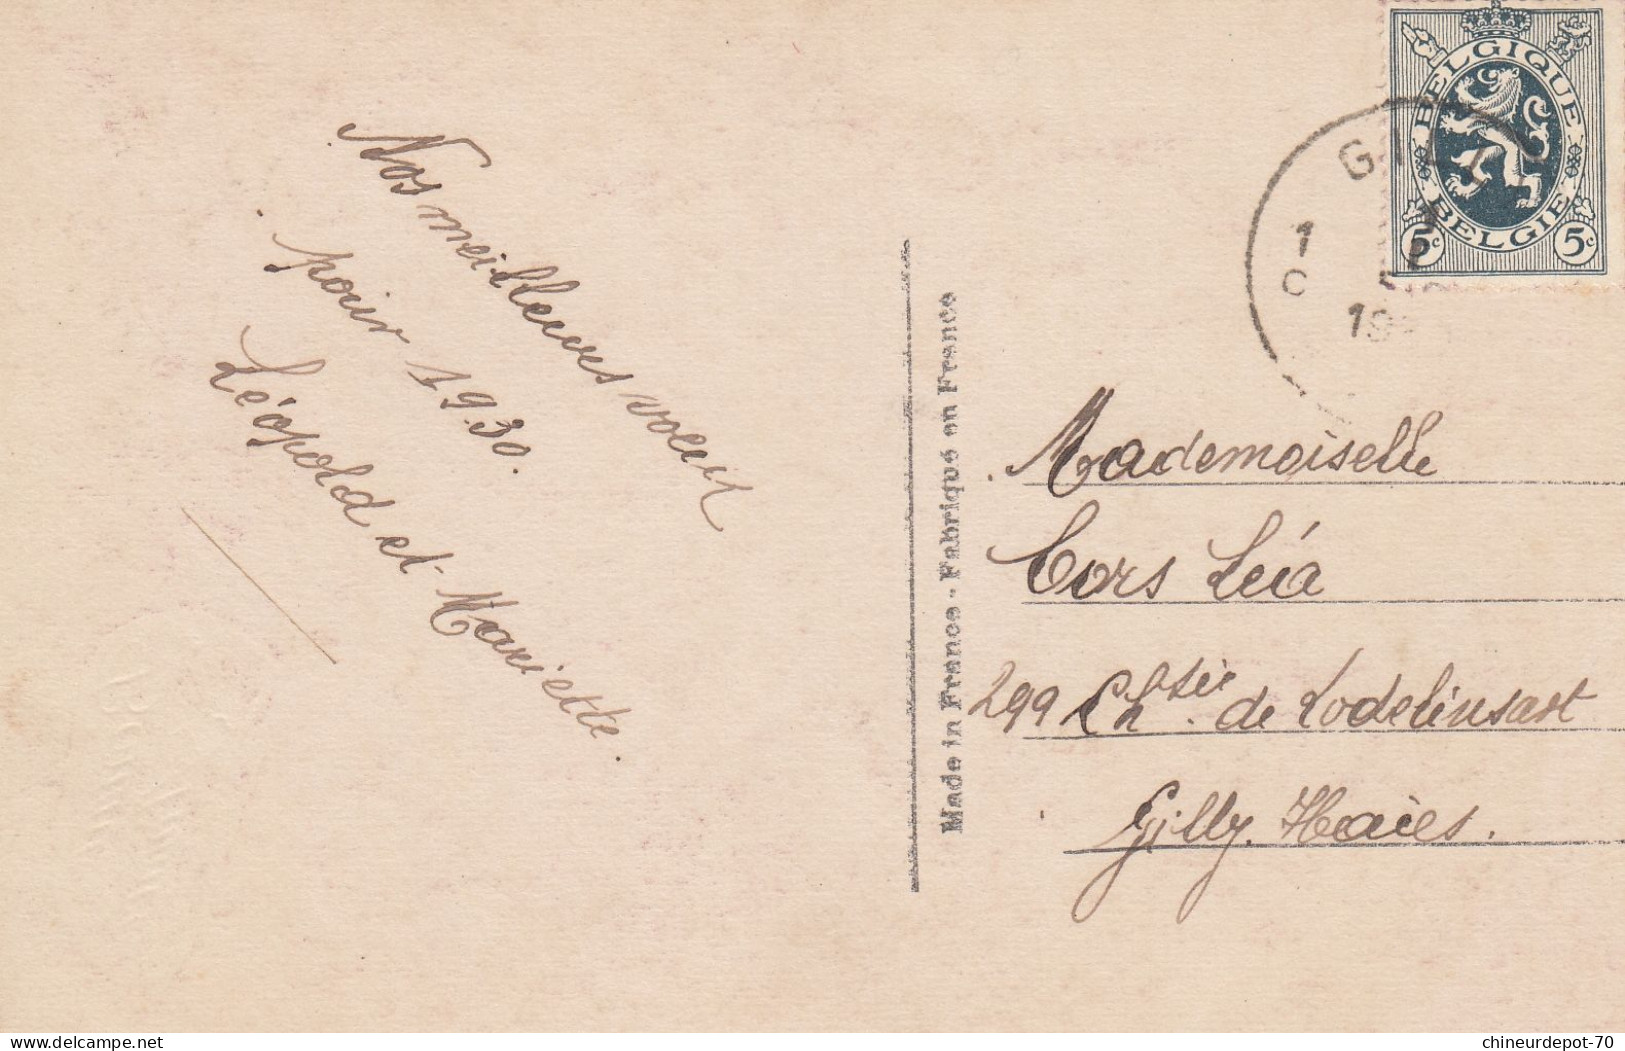 Nos meilleures voeux
pour 1930.
Léopold et Mariette.
Made in France - Fabriqué en France
BELGIQUE
BELGIË
5c 5c
GILLY
Mademoiselle
Cors Léa
299 Chsée de Lodelinsart
Gilly. Haies.
delcampe.net
chineurdepot-70